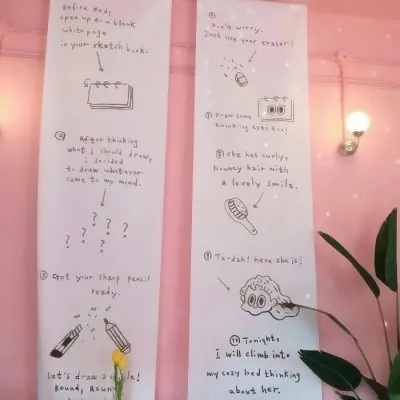 Before bed,
open up to a blank
white page
in your sketch book.
②
After thinking
what I should draw,
I decided
to draw whatever
came to my mind.
? ? ? ? ? ?
③ Get your sharp pencil
ready.
Let's draw a circle!
Round, Roun
Don't worry.
Just use your eraser!
⑦ Draw some
twinkling eyes too!
⑧ She has curly,
bouncy hair with
a lovely smile.
⑨ Ta-dah! here she is!
⑩ Tonight,
I will climb into
my cozy bed thinking
about her.